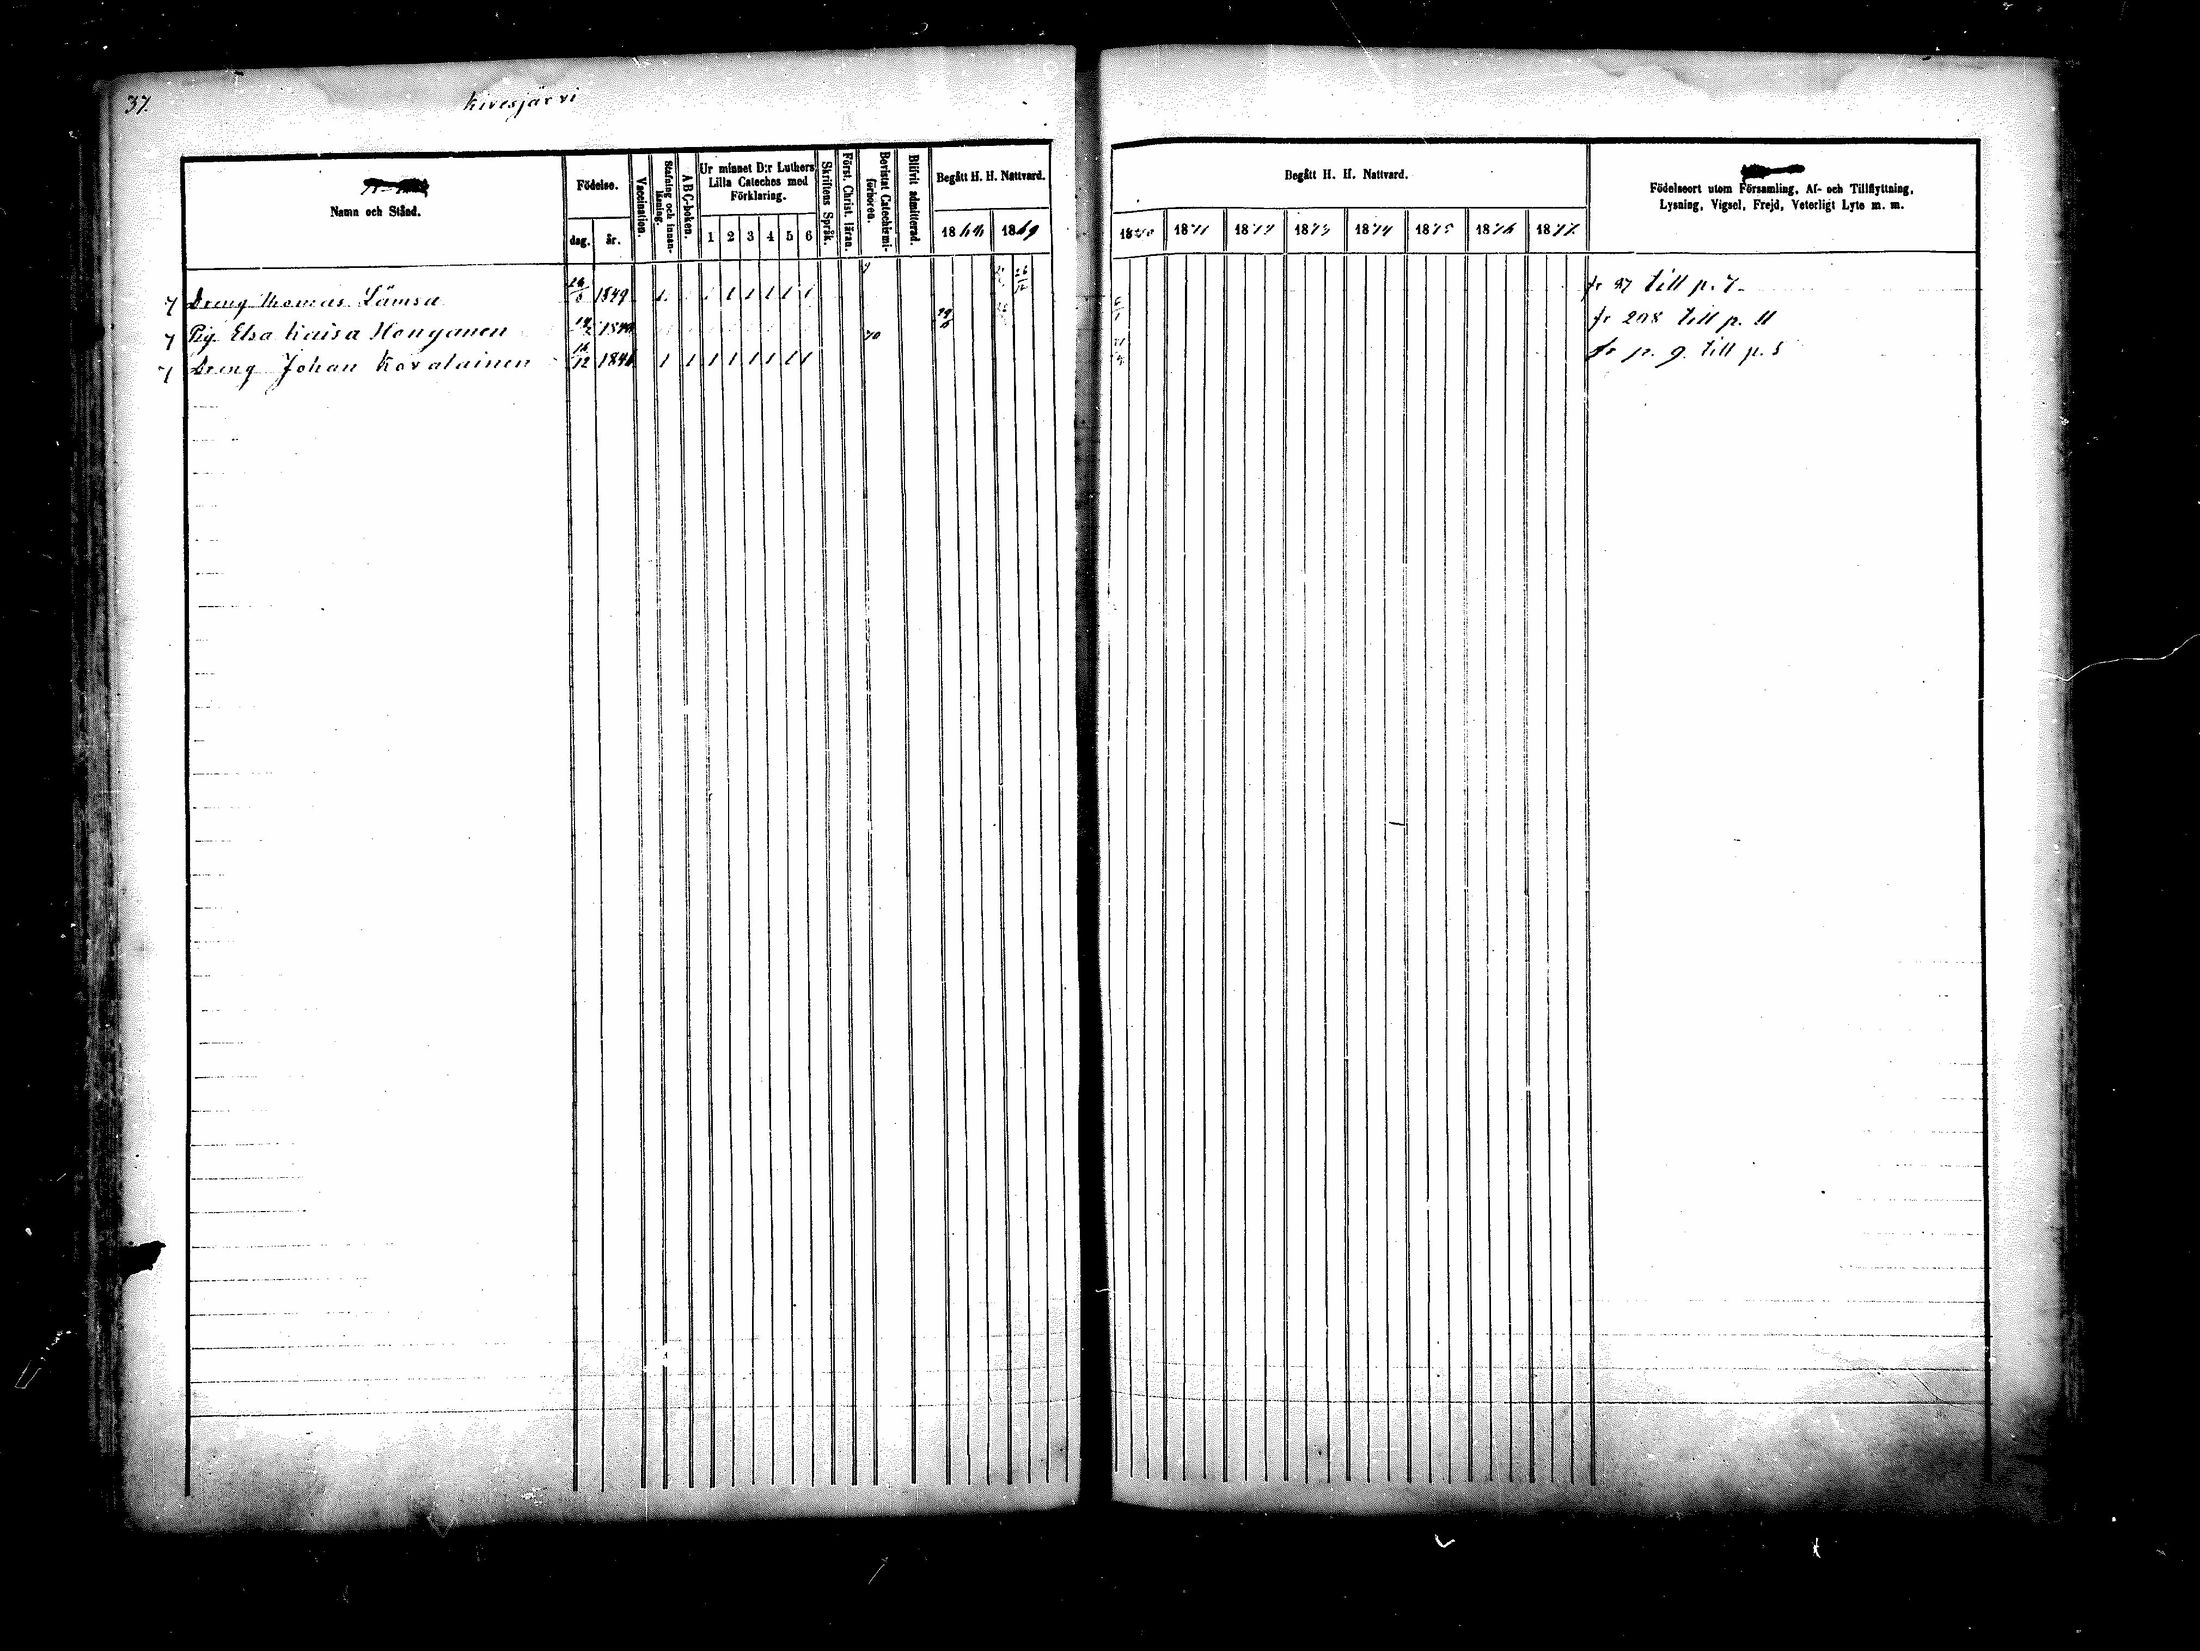 37.
Kivesjärvi
Namn och Stånd.
Födelse.
dag. år.
Vaccination.
Stafning och innan-läsning.
ABC-boken.
Ur minnet D:r Luthers
Lilla Cateches med
Förklaring.
1 2 3 4 5 6
Skriftens Språk.
Först. Christ. läran.
Bevistat Catechismi-förhören.
Blifvit admitterad.
Begått H. H. Nattvard.
1868 1869
Begått H. H. Nattvard.
1870 1871 1872 1873 1874 1875 1876 1877
Födelseort utom Församling, Af- och Tillflyttning,
Lysning, Vigsel, Frejd, Veterligt Lyte m. m.
7 Dreng Thomas Lämsa 1849 1 1 1 1 1 1 fr 37 till p. 7
7 Pig. Elsa Kaisa Honganen fr 208 till p. 11
70
7 Dreng Johan Kovalainen 16/12 1846 1 1 1 1 1 1 1 1 fr p. 9. till p. 5